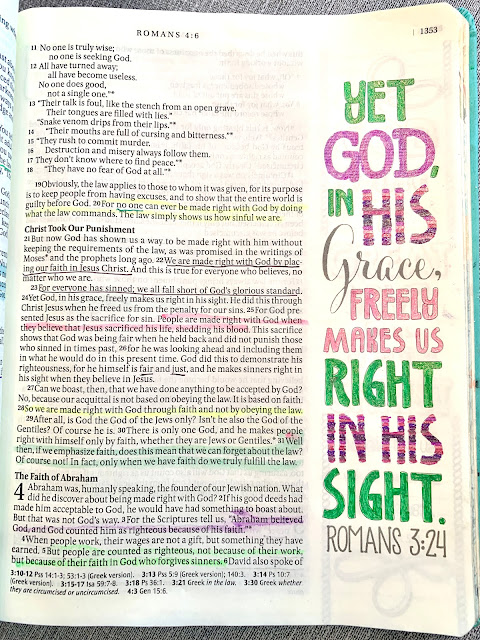 ROMANS 4:6
1353
11 No one is truly wise;
no one is seeking God.
12 All have turned away;
all have become useless.
No one does good,
not a single one."*
13 "Their talk is foul, like the stench from an open grave.
Their tongues are filled with lies."
"Snake venom drips from their lips."*
14 "Their mouths are full of cursing and bitterness."*
15 "They rush to commit murder.
16 Destruction and misery always follow them.
17 They don't know where to find peace."*
18 "They have no fear of God at all."*
19Obviously, the law applies to those to whom it was given, for its purpose
is to keep people from having excuses, and to show that the entire world is
guilty before God. 20For no one can ever be made right with God by doing
what the law commands. The law simply shows us how sinful we are.
Christ Took Our Punishment
21But now God has shown us a way to be made right with him without
keeping the requirements of the law, as was promised in the writings of
Moses* and the prophets long ago. 22We are made right with God by plac-
ing our faith in Jesus Christ. And this is true for everyone who believes, no
matter who we are.
23For everyone has sinned; we all fall short of God's glorious standard.
24Yet God, in his grace, freely makes us right in his sight. He did this through
Christ Jesus when he freed us from the penalty for our sins. 25For God pre-
sented Jesus as the sacrifice for sin. People are made right with God when
they believe that Jesus sacrificed his life, shedding his blood. This sacrifice
shows that God was being fair when he held back and did not punish those
who sinned in times past, 26for he was looking ahead and including them
in what he would do in this present time. God did this to demonstrate his
righteousness, for he himself is fair and just, and he makes sinners right in
his sight when they believe in Jesus.
27Can we boast, then, that we have done anything to be accepted by God?
No, because our acquittal is not based on obeying the law. It is based on faith.
28So we are made right with God through faith and not by obeying the law.
29After all, is God the God of the Jews only? Isn't he also the God of the
Gentiles? Of course he is. 30There is only one God, and he makes people
right with himself only by faith, whether they are Jews or Gentiles.* 31Well
then, if we emphasize faith, does this mean that we can forget about the law?
Of course not! In fact, only when we have faith do we truly fulfill the law.
The Faith of Abraham
4 Abraham was, humanly speaking, the founder of our Jewish nation. What
did he discover about being made right with God? 2If his good deeds had
made him acceptable to God, he would have had something to boast about.
But that was not God's way. 3For the Scriptures tell us, "Abraham believed
God, and God counted him as righteous because of his faith."*
4When people work, their wages are not a gift, but something they have
earned. 5But people are counted as righteous, not because of their work,
but because of their faith in God who forgives sinners. 6David also spoke of
3:10-12 Pss 14:1-3; 53:1-3 (Greek version). 3:13 Pss 5:9 (Greek version); 140:3. 3:14 Ps 10:7
(Greek version). 3:15-17 Isa 59:7-8. 3:18 Ps 36:1. 3:21 Greek in the law. 3:30 Greek whether
they are circumcised or uncircumcised. 4:3 Gen 15:6.
YET
GOD,
IN HIS
Grace,
FREELY
MAKES US
RIGHT
IN HIS
SIGHT.
ROMANS 3:24